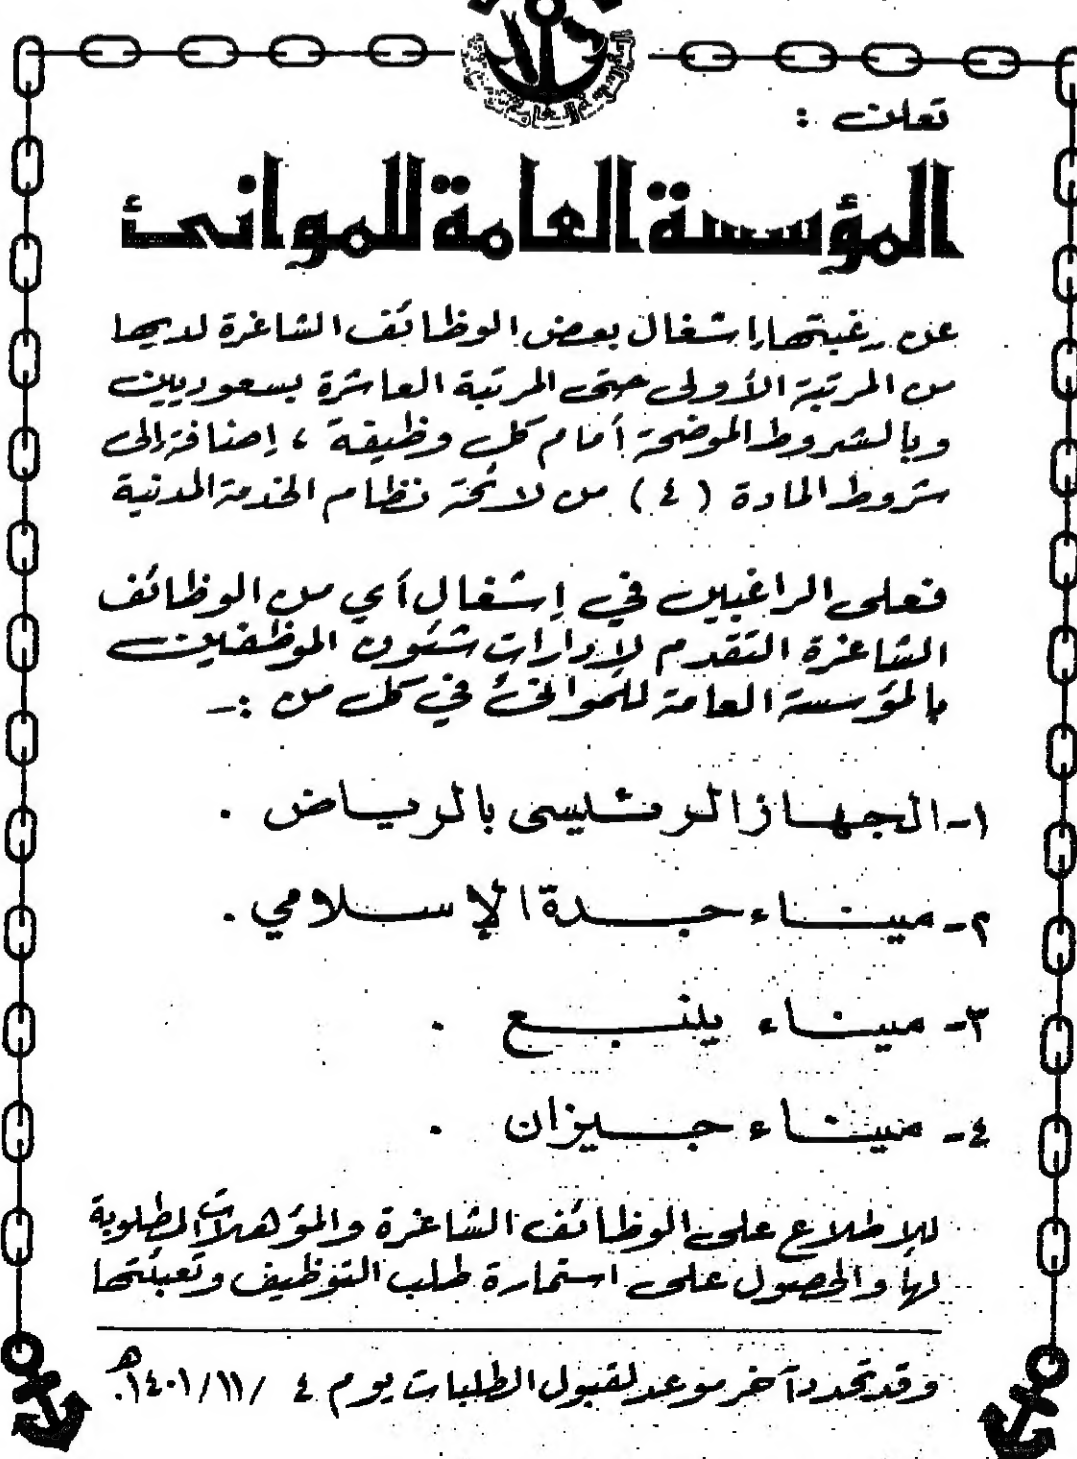 تعلن :
المؤسسة العامة للموانئ
عن رغبتها إشغال بعض الوظائف الشاغرة لديها
من المرتبة الأولى حتى المرتبة العاشرة بسعوديين
وبالشروط الموضحة أمام كل وظيفة ، إضافة إلى
شروط المادة ( ٤ ) من لائحة نظام الخدمة المدنية
فعلى الراغبين في إشغال أي من الوظائف
الشاغرة التقدم لإدارات شئون الموظفين
بالمؤسسة العامة للموانئ في كل من :-
١- الجهاز الرئيسى بالرياض .
٢- ميناء جدة الإسلامي .
٣- ميناء ينبع .
٤- ميناء جيزان .
للإطلاع على الوظائف الشاغرة والمؤهلات المطلوبة
لها والحصول على استمارة طلب التوظيف وتعبئتها
وقد تحدد آخر موعد لقبول الطلبات يوم ٤ /١٤٠١/١١هـ.